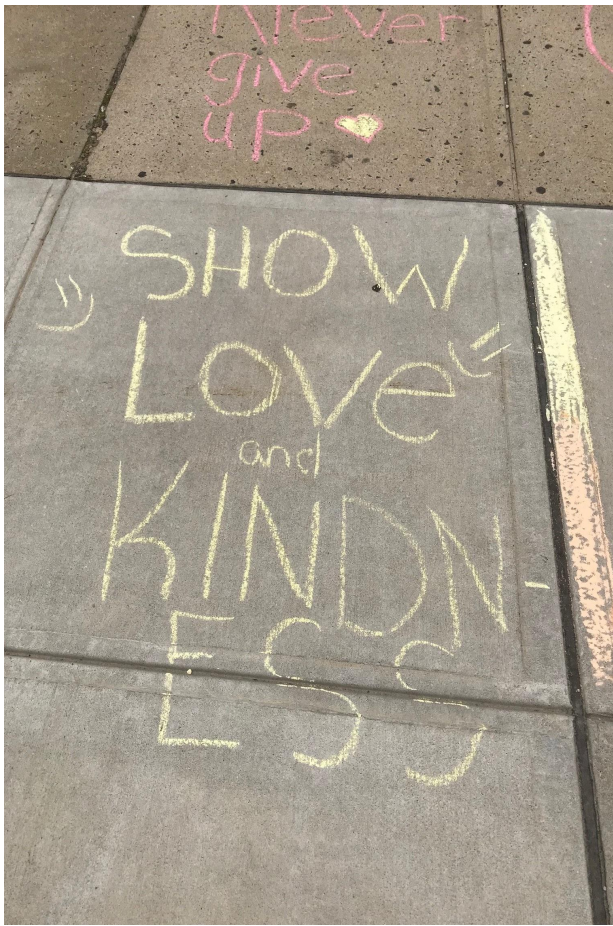 Never
give
up
SHOW
LOVe
and
KINDN-
ESS